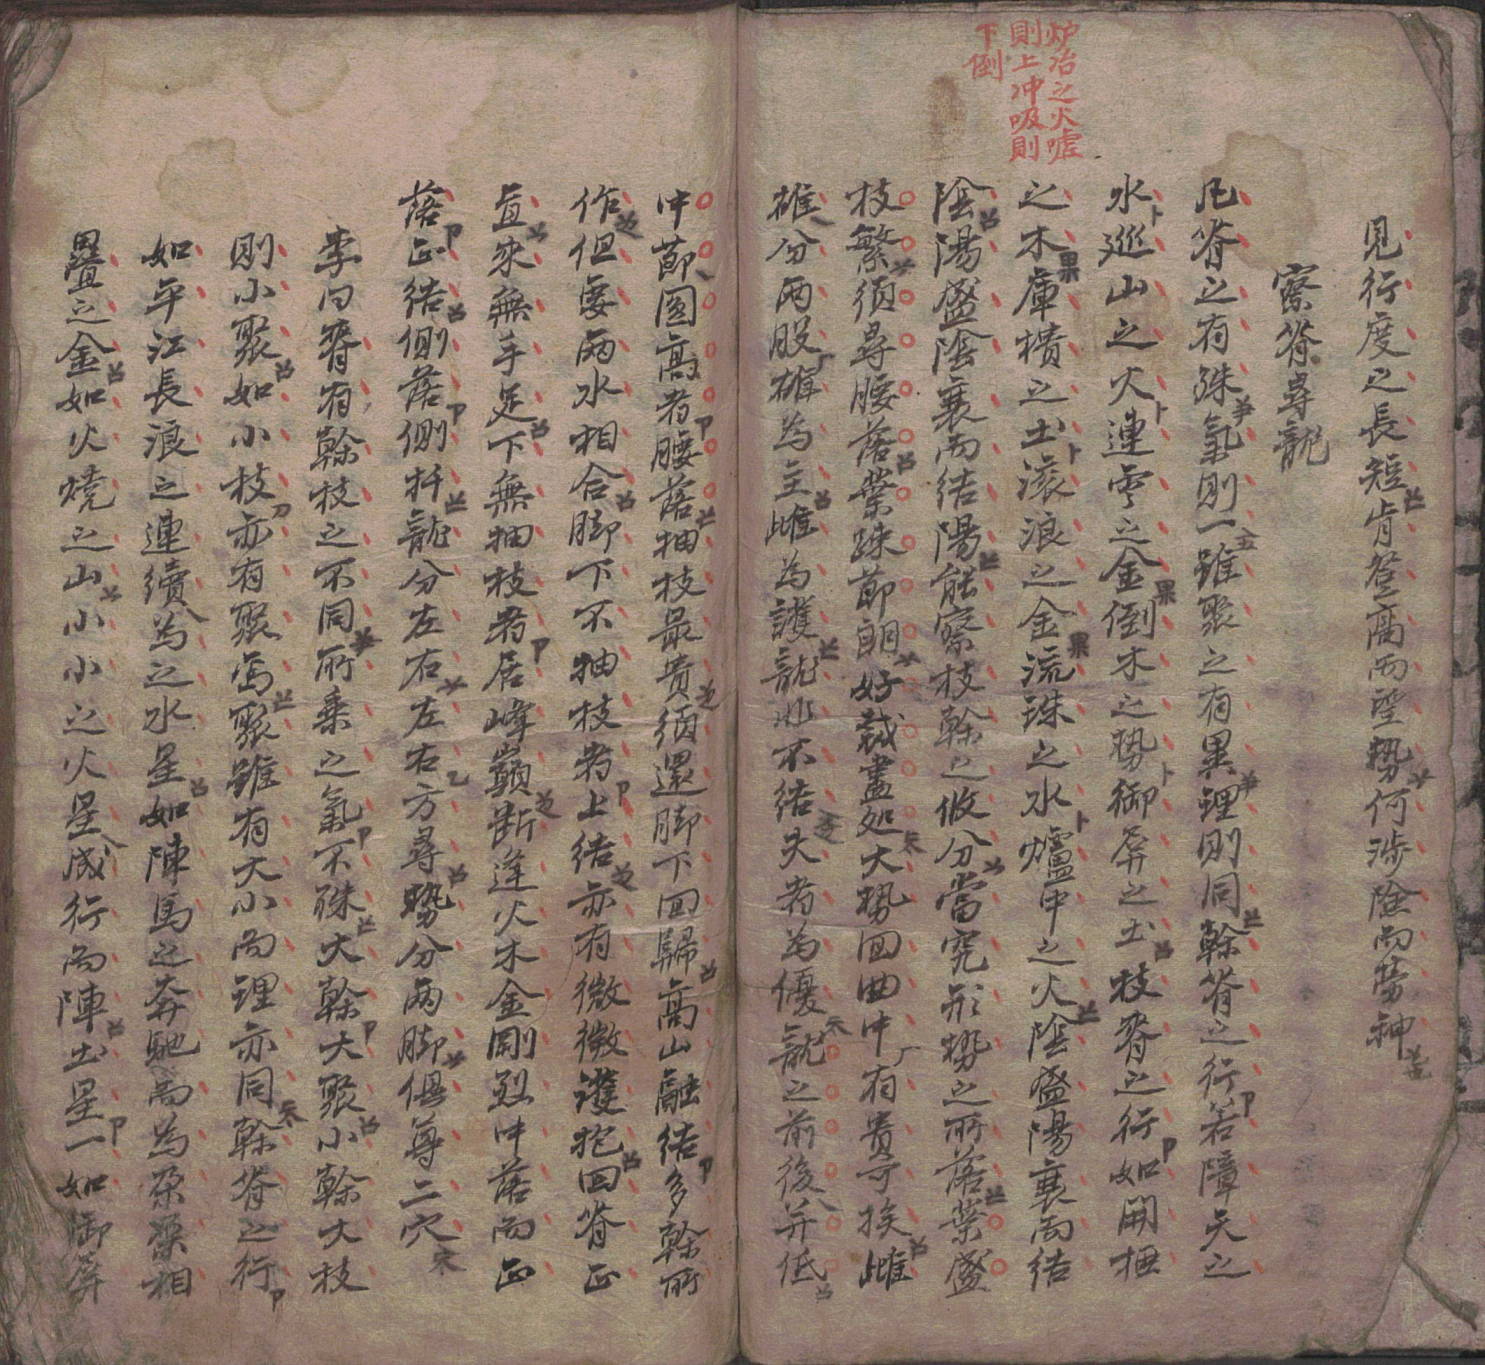 炉冶之火嘘
則上冲吸則
下倒
見行度之長短肯登高而望勢何涉險而勞神
察脊尋龍
凡脊之有殊氣則一雖聚之有異理則同榦脊之行若障天之
水巡山之火連雲之金倒木之勢御屏之土枝脊之行如開插
之木庫樻之土滾浪之金流珠之水爐中之火陰盛陽衰而結
陰陽盛陰衰而結陽能察枝榦之收分當究形勢之所落葉盛
枝繁須尋腰落葉踈節朗好裁盡処大勢回曲中有貴可挨雌
雄分兩股雄為主雌為護龍非不結夫者為優龍之前後并低
中節圓高者腰落抽枝最貴須還脚下回歸高山融結多榦所
作但要兩水相合脚下不抽枝者上結亦有微微護抱回脊正
直來無手足下無抽枝者居峰巔断逢火木金剛烈中落而正
落正結側落側扦龍分左右左右方尋勢分兩脚俱尋二穴
李曰脊有榦枝之不同所乗之氣不殊大榦大聚小榦大枝
則小聚如小枝亦有聚焉聚雖有大小而理亦同榦脊之行
如平江長浪之連續為之水星如陣馬之奔馳而為朶朶相
疊之金如火燒之山小小之火星成行而陣土星一如御屏